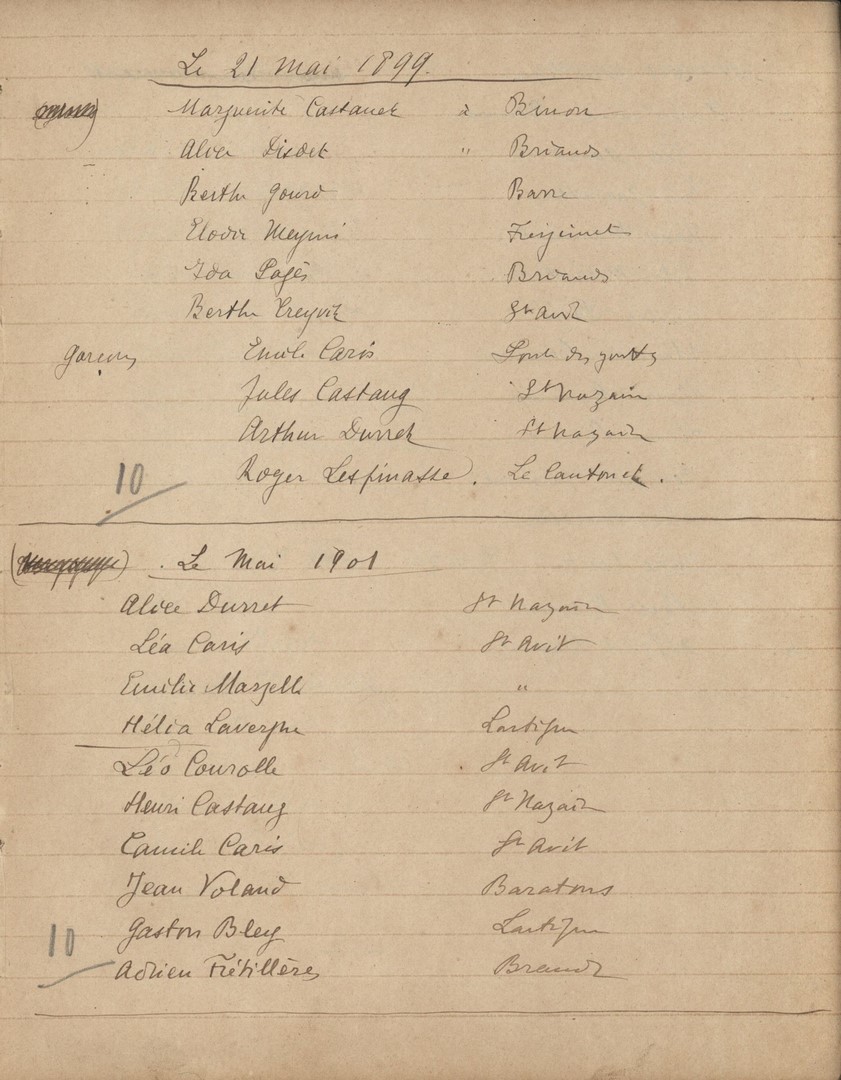 Le 21 Mai 1899.
Marguerite Castanet à Binon
Alice Disdet " Briands
Berthe Gourd Barre
Elodie Meymi Freijeinet
Ida Pagès Briands
Berthe Treyvit St Avit
garçons Emile Caris des
Jules Castang St Nazaire
Arthur Durret St Nazaire
Roger Lespinasse. Le Cantonet.
10
Le Mai 1901
Alice Durret St Nazaire
Léa Caris St Avit
Emilie Marzelle "
Hélia Lavergne Lartigue
Léo Courolle St Avit
Henri Castang St Nazaire
Camille Caris St Avit
Jean Voland Baratons
Gaston Bley Lartigue
10
Adrien Frétillères Briands